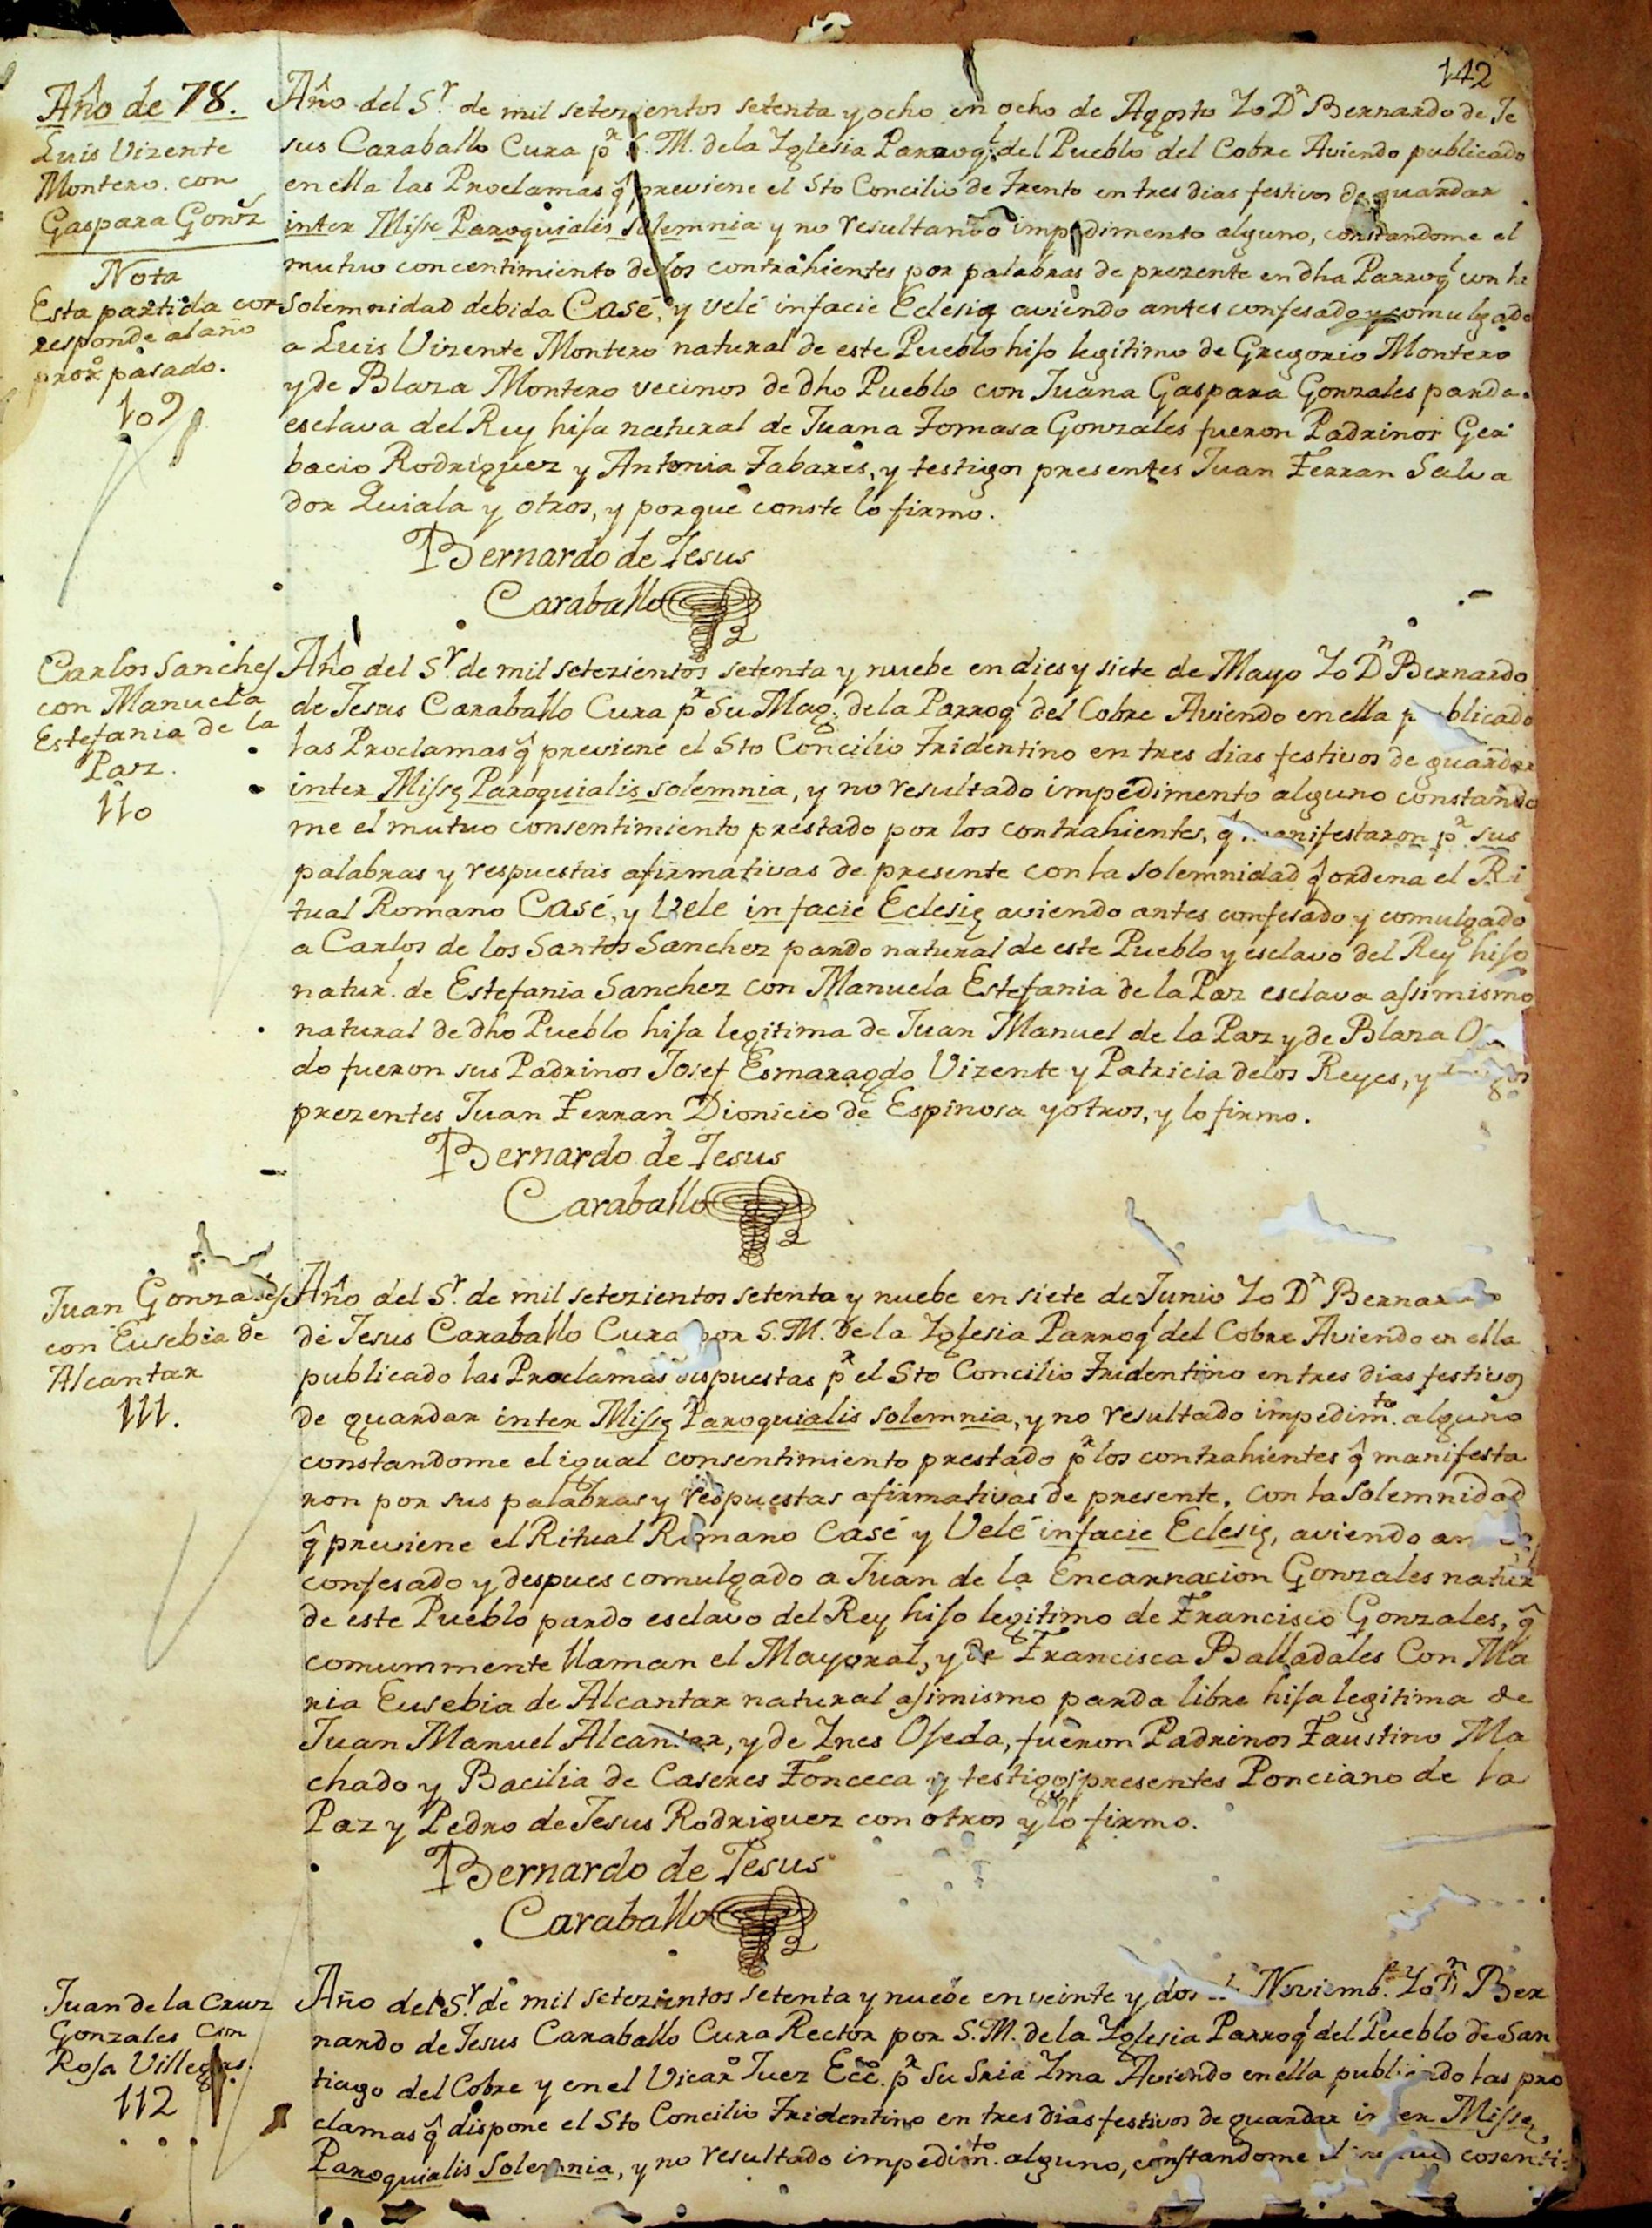 142
Año de 78.
Luis Vizente
Montero. con
Gaspara Gonz
Nota
Esta partida cor
responde al año
prox pasado.
109
Año del Sr. de mil setezientos setenta y ocho en ocho de Agosto Yo Dn Bernardo de Je
sus Caraballo Cura pr S. M. de la Yglesia Parroql. del Pueblo del Cobre Aviendo publicado
en ella las Proclamas q̂ previene el Sto Concilio de Trento en tres dias festivos de guardar
inter Misse Paroquialis solemnia y no resultando impedimento alguno, constandome el
mutuo concentimiento de los contrahientes por palabras de prezente en dha Parroql con la
solemnidad debida Casé, y velé infacie Eclesię aviendo antes confesado y comulgado
a Luis Vizente Montero natural de este Pueblo hijo legitimo de Gregorio Montero
y de Blaza Montero vecinos de dho Pueblo con Juana Gaspara Gonzales parda
esclava del Rey hija natural de Juana Tomasa Gonzales fueron Padrinos Ger
bacio Rodriguez y Antonia Tabares, y testigos presentes Juan Ferran Salva
dor Quiala y otros, y porque conste lo firmo.
Bernardo de Jesus
Caraballo
Carlos Sanches
con Manuela
Estefania de la
Paz.
110
Año del Sr. de mil setezientos setenta y nuebe en dies y siete de Mayo Yo Dn Bernardo
de Jesus Caraballo Cura pr Su Mag. de la Parroql del Cobre Aviendo en ella publicado
las Proclamas q̂ previene el Sto Concilio Tridentino en tres dias festivos de guardar
inter Missę Paroquialis solemnia, y no resultado impedimento alguno constando
me el mutuo consentimiento prestado por los contrahientes, q̂ manifestaron pr sus
palabras y respuestas afirmativas de presente con la solemnidad q̂ ordena el Ri
tual Romano Casé, y Vele in facie Eclesię aviendo antes confesado y comulgado
a Carlos de los Santos Sanchez pardo natural de este Pueblo y esclavo del Rey hijo
natur. de Estefania Sanchez con Manuela Estefania de la Paz esclava assimismo
natural de dho Pueblo hija legitima de Juan Manuel de la Paz y de Blaza
do fueron sus Padrinos Josef Esmaragdo Vizente y Patricia de los Reyes, y
prezentes Juan Ferran Dionicio de Espinosa y otros, y lo firmo.
Bernardo de Jesus
Caraballo
Juan Gonzales
con Eusebia de
Alcantar
111.
Año del Sr. de mil setezientos setenta y nuebe en siete de Junio Yo Dn Bernardo
de Jesus Caraballo Cura por S. M. de la Yglesia Parroql del Cobre Aviendo en ella
publicado las Proclamas dispuestas pr el Sto Concilio Tridentino en tres dias festivos
de guardar inter Missę Paroquialis solemnia, y no resultado impedimto. alguno
constandome el igual consentimiento prestado pr los contrahientes q̂ manifesta
ron por sus palabras y respuestas afirmativas de presente, con la solemnidad
q̂ previene el Ritual Romano Casé y Velé infacie Eclesię, aviendo antes
confesado y despues comulgado a Juan de la Encarnacion Gonzales natur
de este Pueblo pardo esclavo del Rey hijo legitimo de Francisco Gonzales, q̂
comummente llaman el Mayoral, y de Francisca Balladales Con Ma
ria Eusebia de Alcantar natural asimismo parda libre hija legitima de
Juan Manuel Alcantar, y de Ynes Ojeda, fueron Padrinos Faustino Ma
chado y Bacilia de Caseres Fonceca y testigos presentes Ponciano de la
Paz y Pedro de Jesus Rodriguez con otros y lo firmo.
Bernardo de Jesus
Caraballo
Juan de la Cruz
Gonzales con
Rosa Villegas.
112
Año del Sr. de mil setezientos setenta y nuebe en veinte y dos de Noviembe. Yo Dn Ber
nardo de Jesus Caraballo Cura Rector por S. M. de la Yglesia Parroql del Pueblo de San
tiago del Cobre y en el Vicaro Juez Ecc. pr Su Sria Yma Aviendo en ella publicado las pro
clamas q̂ dispone el Sto Concilio Tridentino en tres dias festivos de guardar inter Missę,
Paroquialis solemnia, y no resultado impedimto. alguno, constandome el cosenti